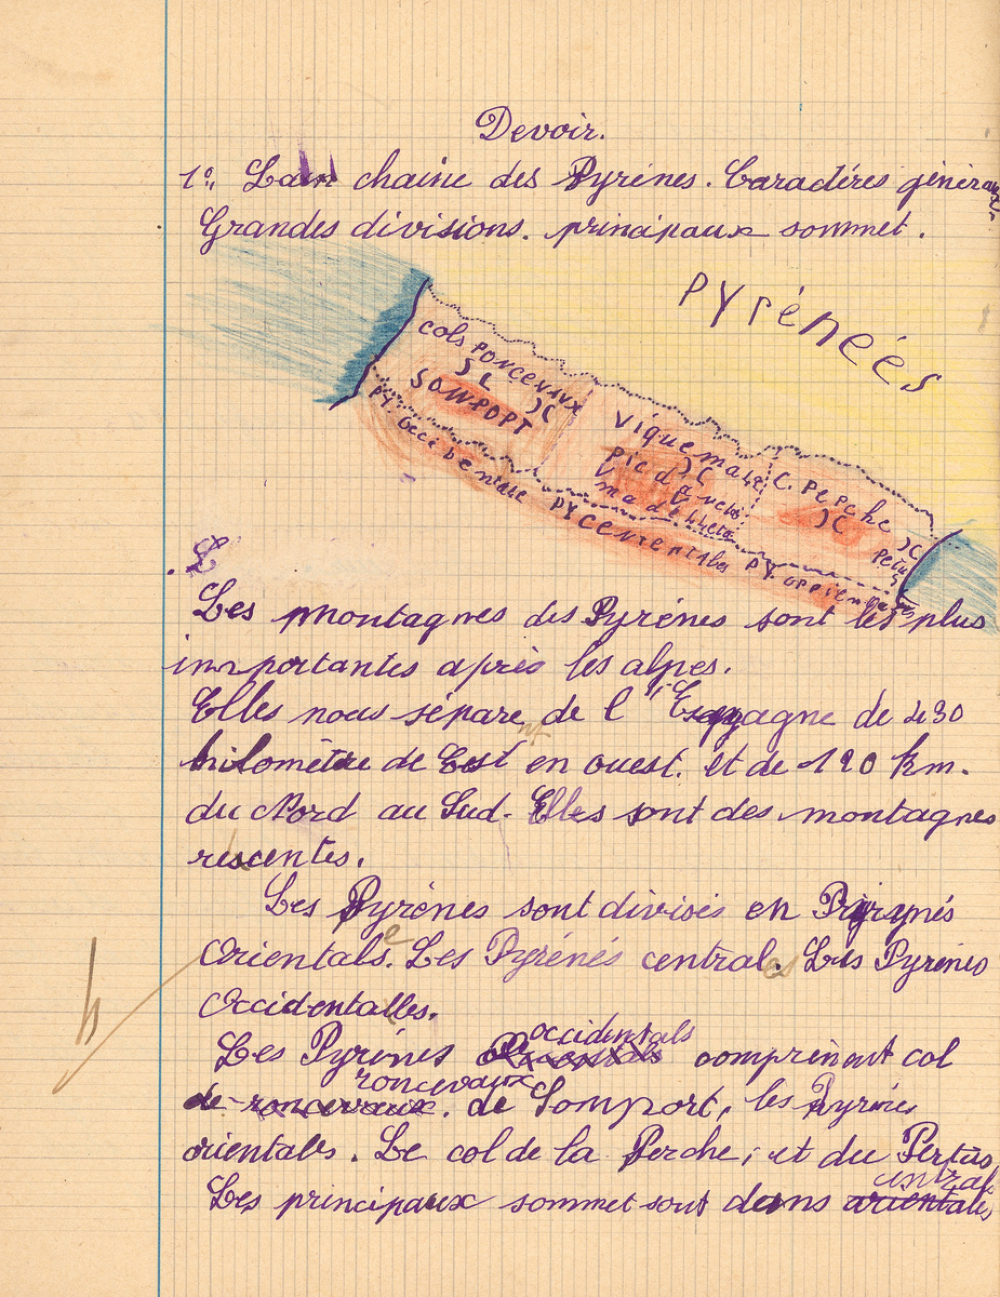 Devoir.
1º, La chaine des Pyrénes. Caractères généraux
Grandes divisions. principaux sommet.
PYrénéés
cols roncevaux
SOMPORT
PY. occidentale
Viquemale
pic d'aneto
maladetta
PYcentrales
C. Perche
Pertus
PY. orientales
L
Les montagnes des Pyrénes sont les plus
importantes après les alpes.
Elles nous sépare de l'Espagne de 430
nt
kilomètre de Est en ouest. et de 120 km.
du Nord au Sud. Elles sont des montagnes
récentes.
Les Pyrénes sont divisés en Pyrynés
Orientals. Les Pyrénés centrales. Les Pyrénés
Occidentalles.
Les Pyrénés occidentals comprènent col
roncevaux
de roncevaux. de Somport, les Pyrénés
orientales. Le col de la Perche, et du Pertus
central
Les principaux sommet sont dans orientales
h